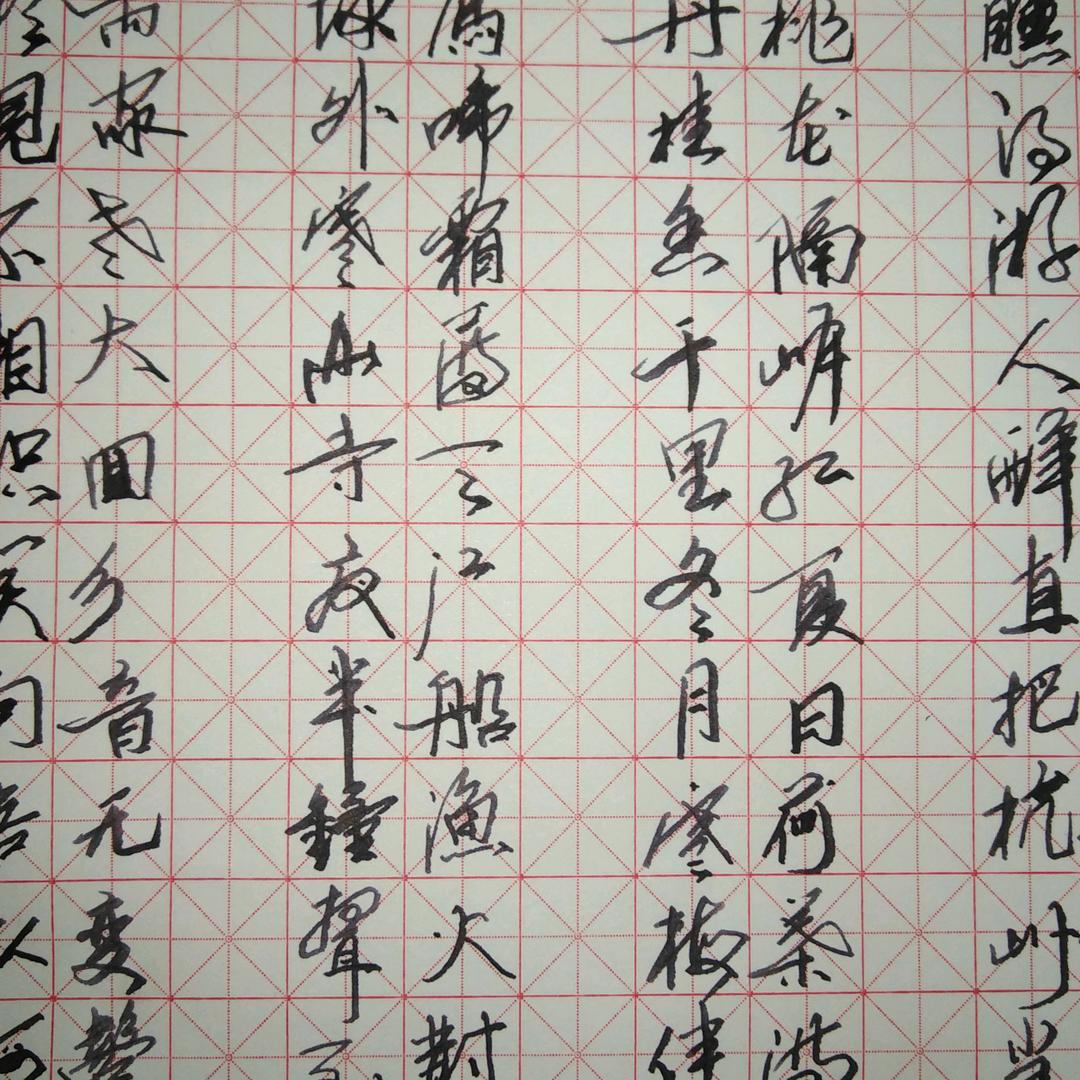 得游人醉直把杭州当
桃花隔岸红夏日荷葉满
丹桂香千里冬月寒梅伴
啼霜满天江船渔火對
城外寒山寺夜半鐘聲到
家老大回乡音无变鬓
見不相识笑问客从何